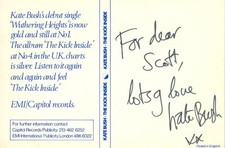 Kate Bush's debut single
"Wuthering Heights" is now
gold and still at No1.
The album "The Kick Inside"
at No 4 in the U.K. charts
is silver. Listen to it again
and again and feel
"The Kick Inside"
EMI/Capitol records.
For further information contact
Capitol Records Publicity 213-462 6252
EMI Publicity London 486 6022
KATE BUSH · THE KICK INSIDE
KATE BUSH · THE KICK INSIDE
For dear
Scott,
lots of love
Kate Bush
xx
Printed in England